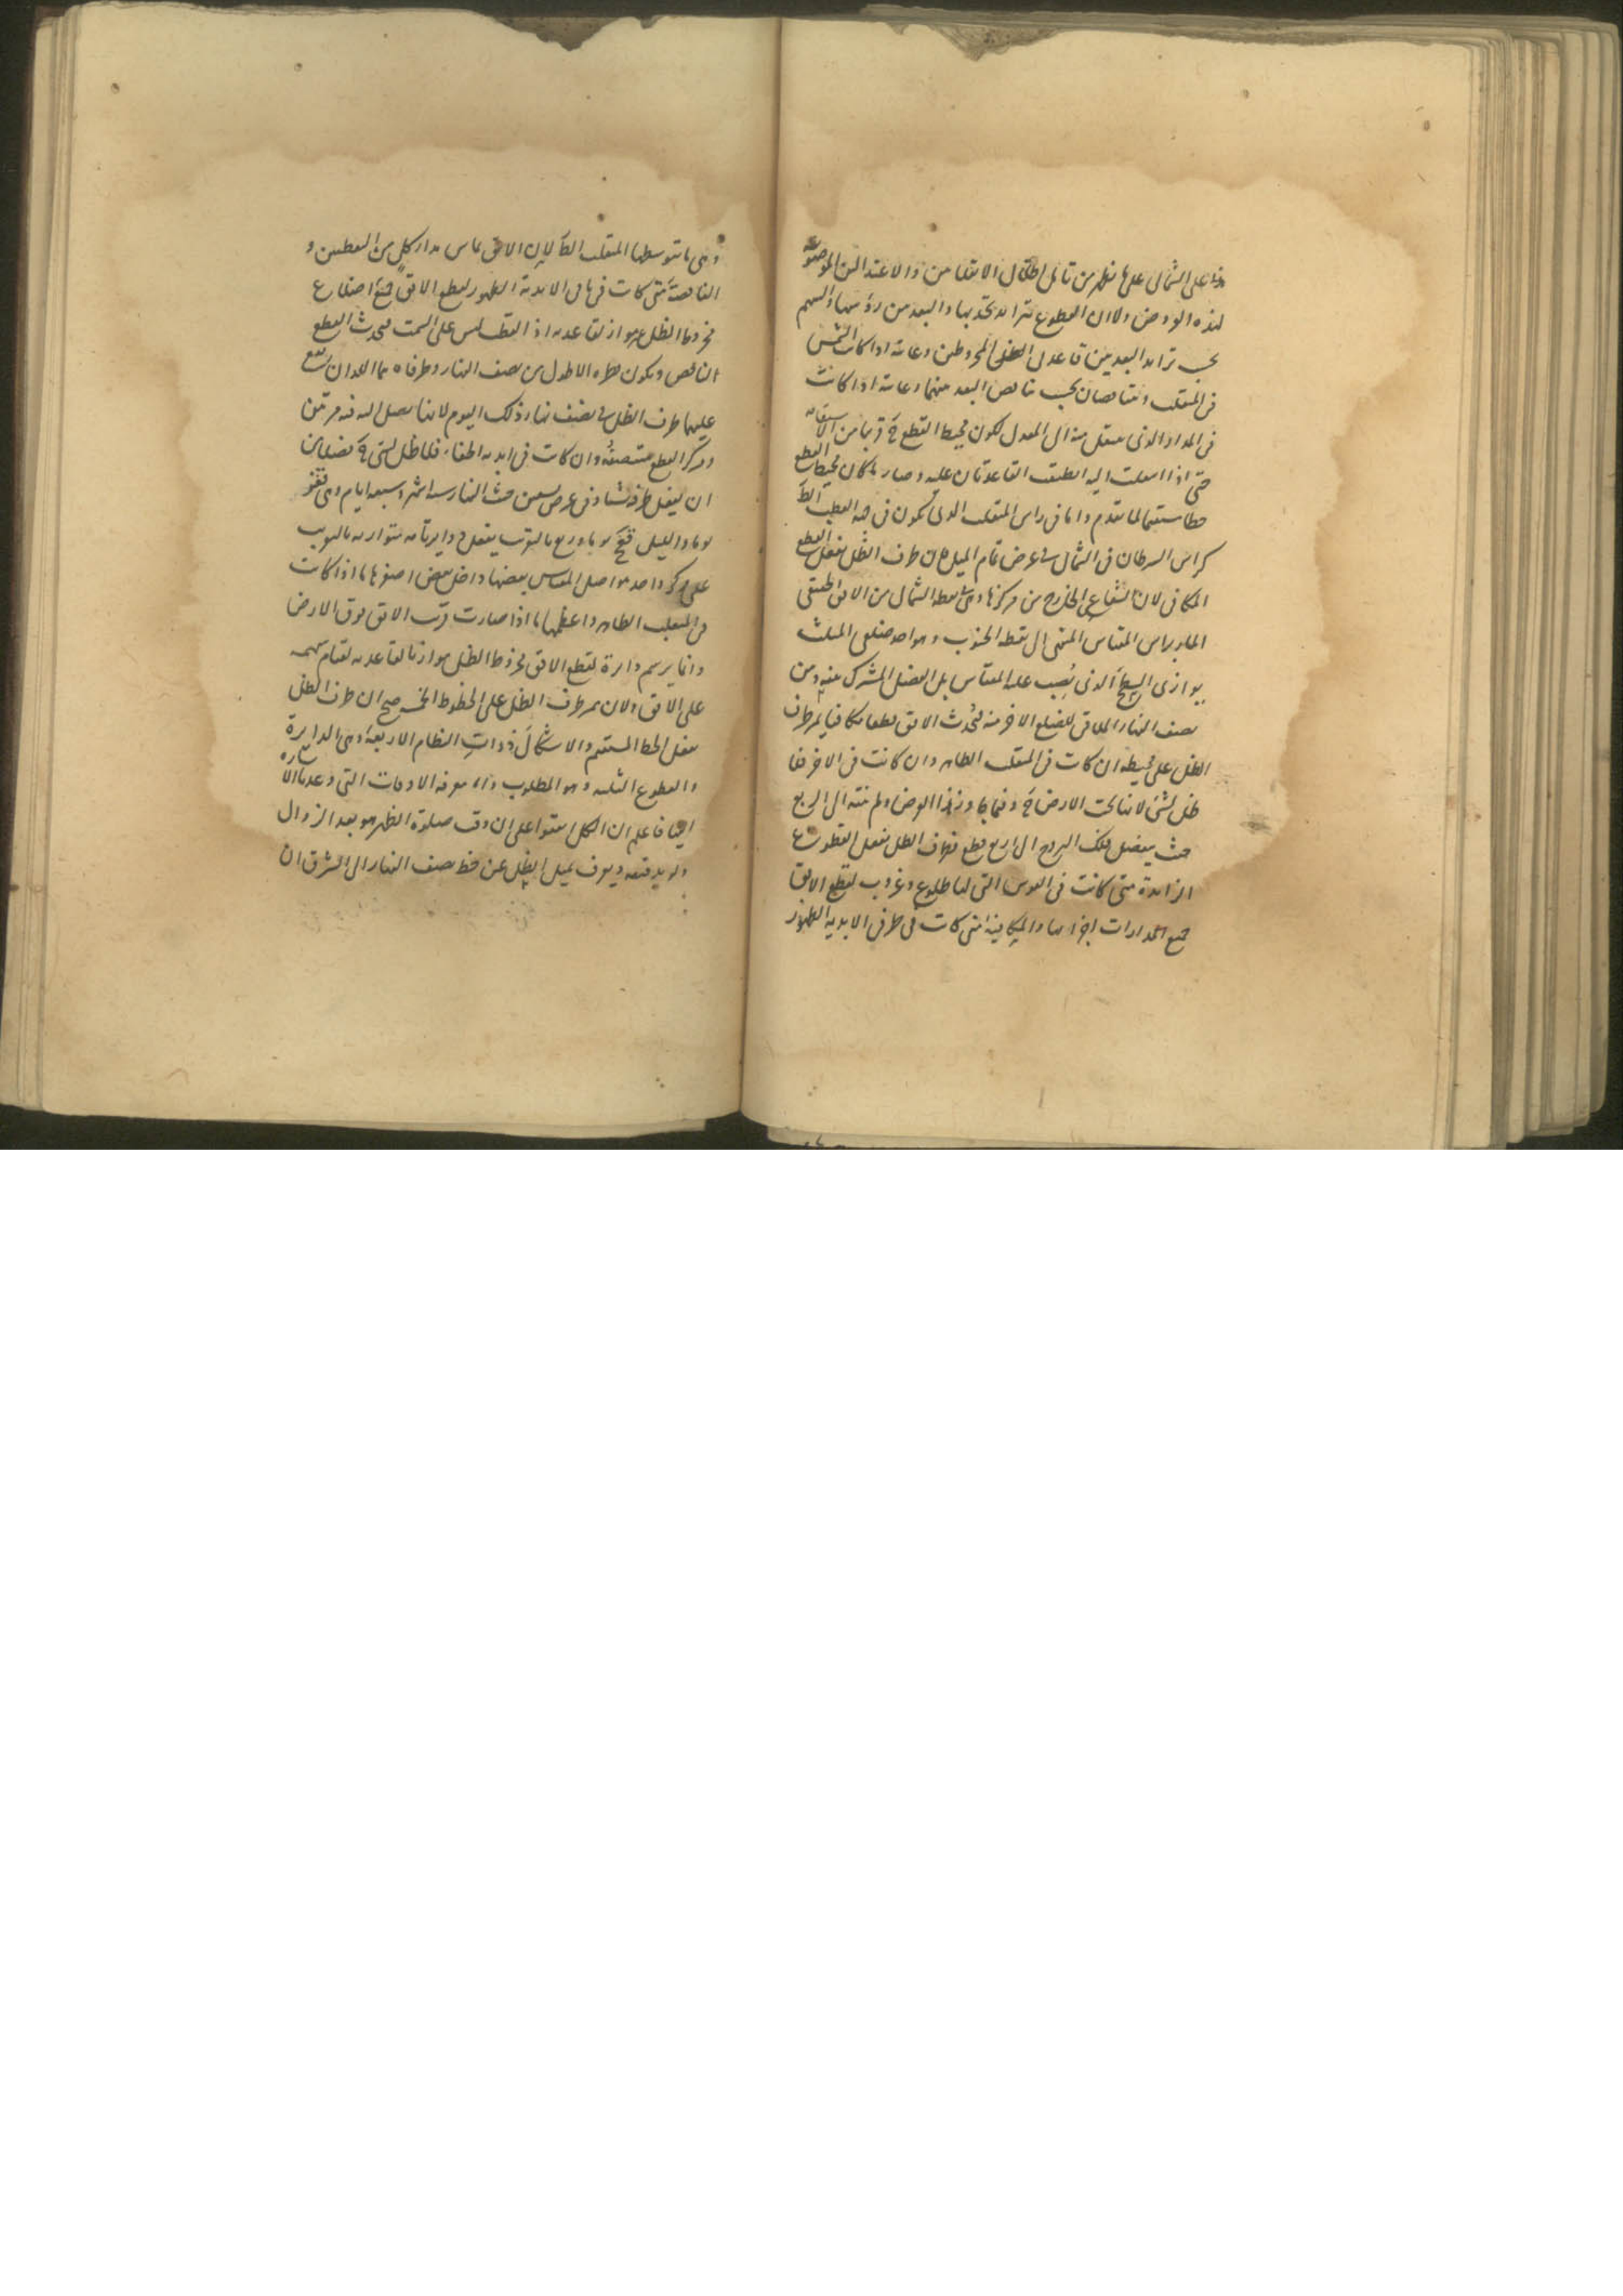 على الشمالى على ما يظهر من تامل اظلال الانقلابين والاعتدالين الموضوعة
لهذه العروض ولان القطوع تتزايد تحدبها والبعد من رؤسها والسهم
بحسب تزايد البعد بين قاعدتى الظل المخروطين وغايته اذا كانت الشمس
فى المنقلب ويتناقصان بحسب تناقص البعد بينهما وغايته اذا كانت
فى المدار الذى ينتقل منه الى المعدل لكون محيط القطع ح قريبا من الاستقامة
حتى اذا انتقلت اليه انطبقت القاعدتان عليه وصار مكان محيط القطع
خطا مستقيما لما تقدم واما فى راس المنقلب الذى يكون فى جهة القطب الظ
كراس السرطان فى الشمال فى عرض تمام الميل فان طرف الظل يفعل القطع
المكافى لان الشعاع الخارج من مركزها وهى نقطة الشمال من الافق الحقيقى
المار براس المقياس المنتهى الى نقطة الجنوب وهو احد ضلعى المثلث
يوازى السطح الذى نصب عليه المقياس بل الفصل المشترك بينه وبين
نصف النهار الملاقى للضلع الاخر منه فيحدث الافق قطعا مكافيا يمر طرف
الظل على محيطه ان كانت فى المنقلب الظاهر وان كانت فى الاخر فلا
ظل لشئ لانها تحت الارض ح وفيما جاوز هذا العرض ولم ينته الى الربع
حيث ينفصل فلك البروج الى اربع قطع فطرف الظل يفعل القطوع
الزايدة متى كانت فى القوس التى لها طلوع وغروب لقطع الافق
جميع المدارات اجزائها والمكافية متى كانت فى طرفى الابدية الظهور
وهى ما يتوسطها المنقلب الظ لان الافق يماس مدار كل من القطبين و
الناقصة متى كانت فى باقى الابدية الظهور لقطع الافق جميع اضلاع
مخروط الظل غير مواز لقاعدته اذ القطب ليس على السمت فيحدث القطع
الناقص ويكون قطره الاطول من نصف النهار وطرفاه هما اللذان يقع
عليهما طرف الظل فى نصف نهار ذلك اليوم لانها تصل اليه فيه مرتين
ومركز القطع منتصفه وان كانت فى ابدية الخفاء فلا ظل لشئ ح فضلا عن
ان يفعل طرفه شيئا وفى عرض تسعين حيث النهار ستة اشهر وسبعة ايام وهى قفو
يوما والليل قعح يوما وربع بالتقريب يفعل دوايرتامة متوازية بالتقريب
على مركز واحد هو اصل المقياس بعضها داخل بعض اصغرها ما اذا كانت
فى المنقلب الظاهر واعظمها ما اذا صارت قرب الافق فوق الارض
وانما يرسم دايرة لقطع الافق مخروط الظل موازيا لقاعدته لقيام سهمه
على الافق ولان ممر طرف الظل على الخطوط الخ صح ان طرف الظل
يفعل الخط المستقيم والاشكال ذوات النظام الاربعة وهى الدايرة
والقطوع الثلثة وهو المطلوب واما معرفة الاوقات التى وعدنا الاشارة
اليها فاعلم ان الكل اتفقوا على ان وقت صلوة الظهر هو بعد الزوال
ولو بدقيقة ويعرف بميل الظل عن خط نصف النهار الى المشرق ان